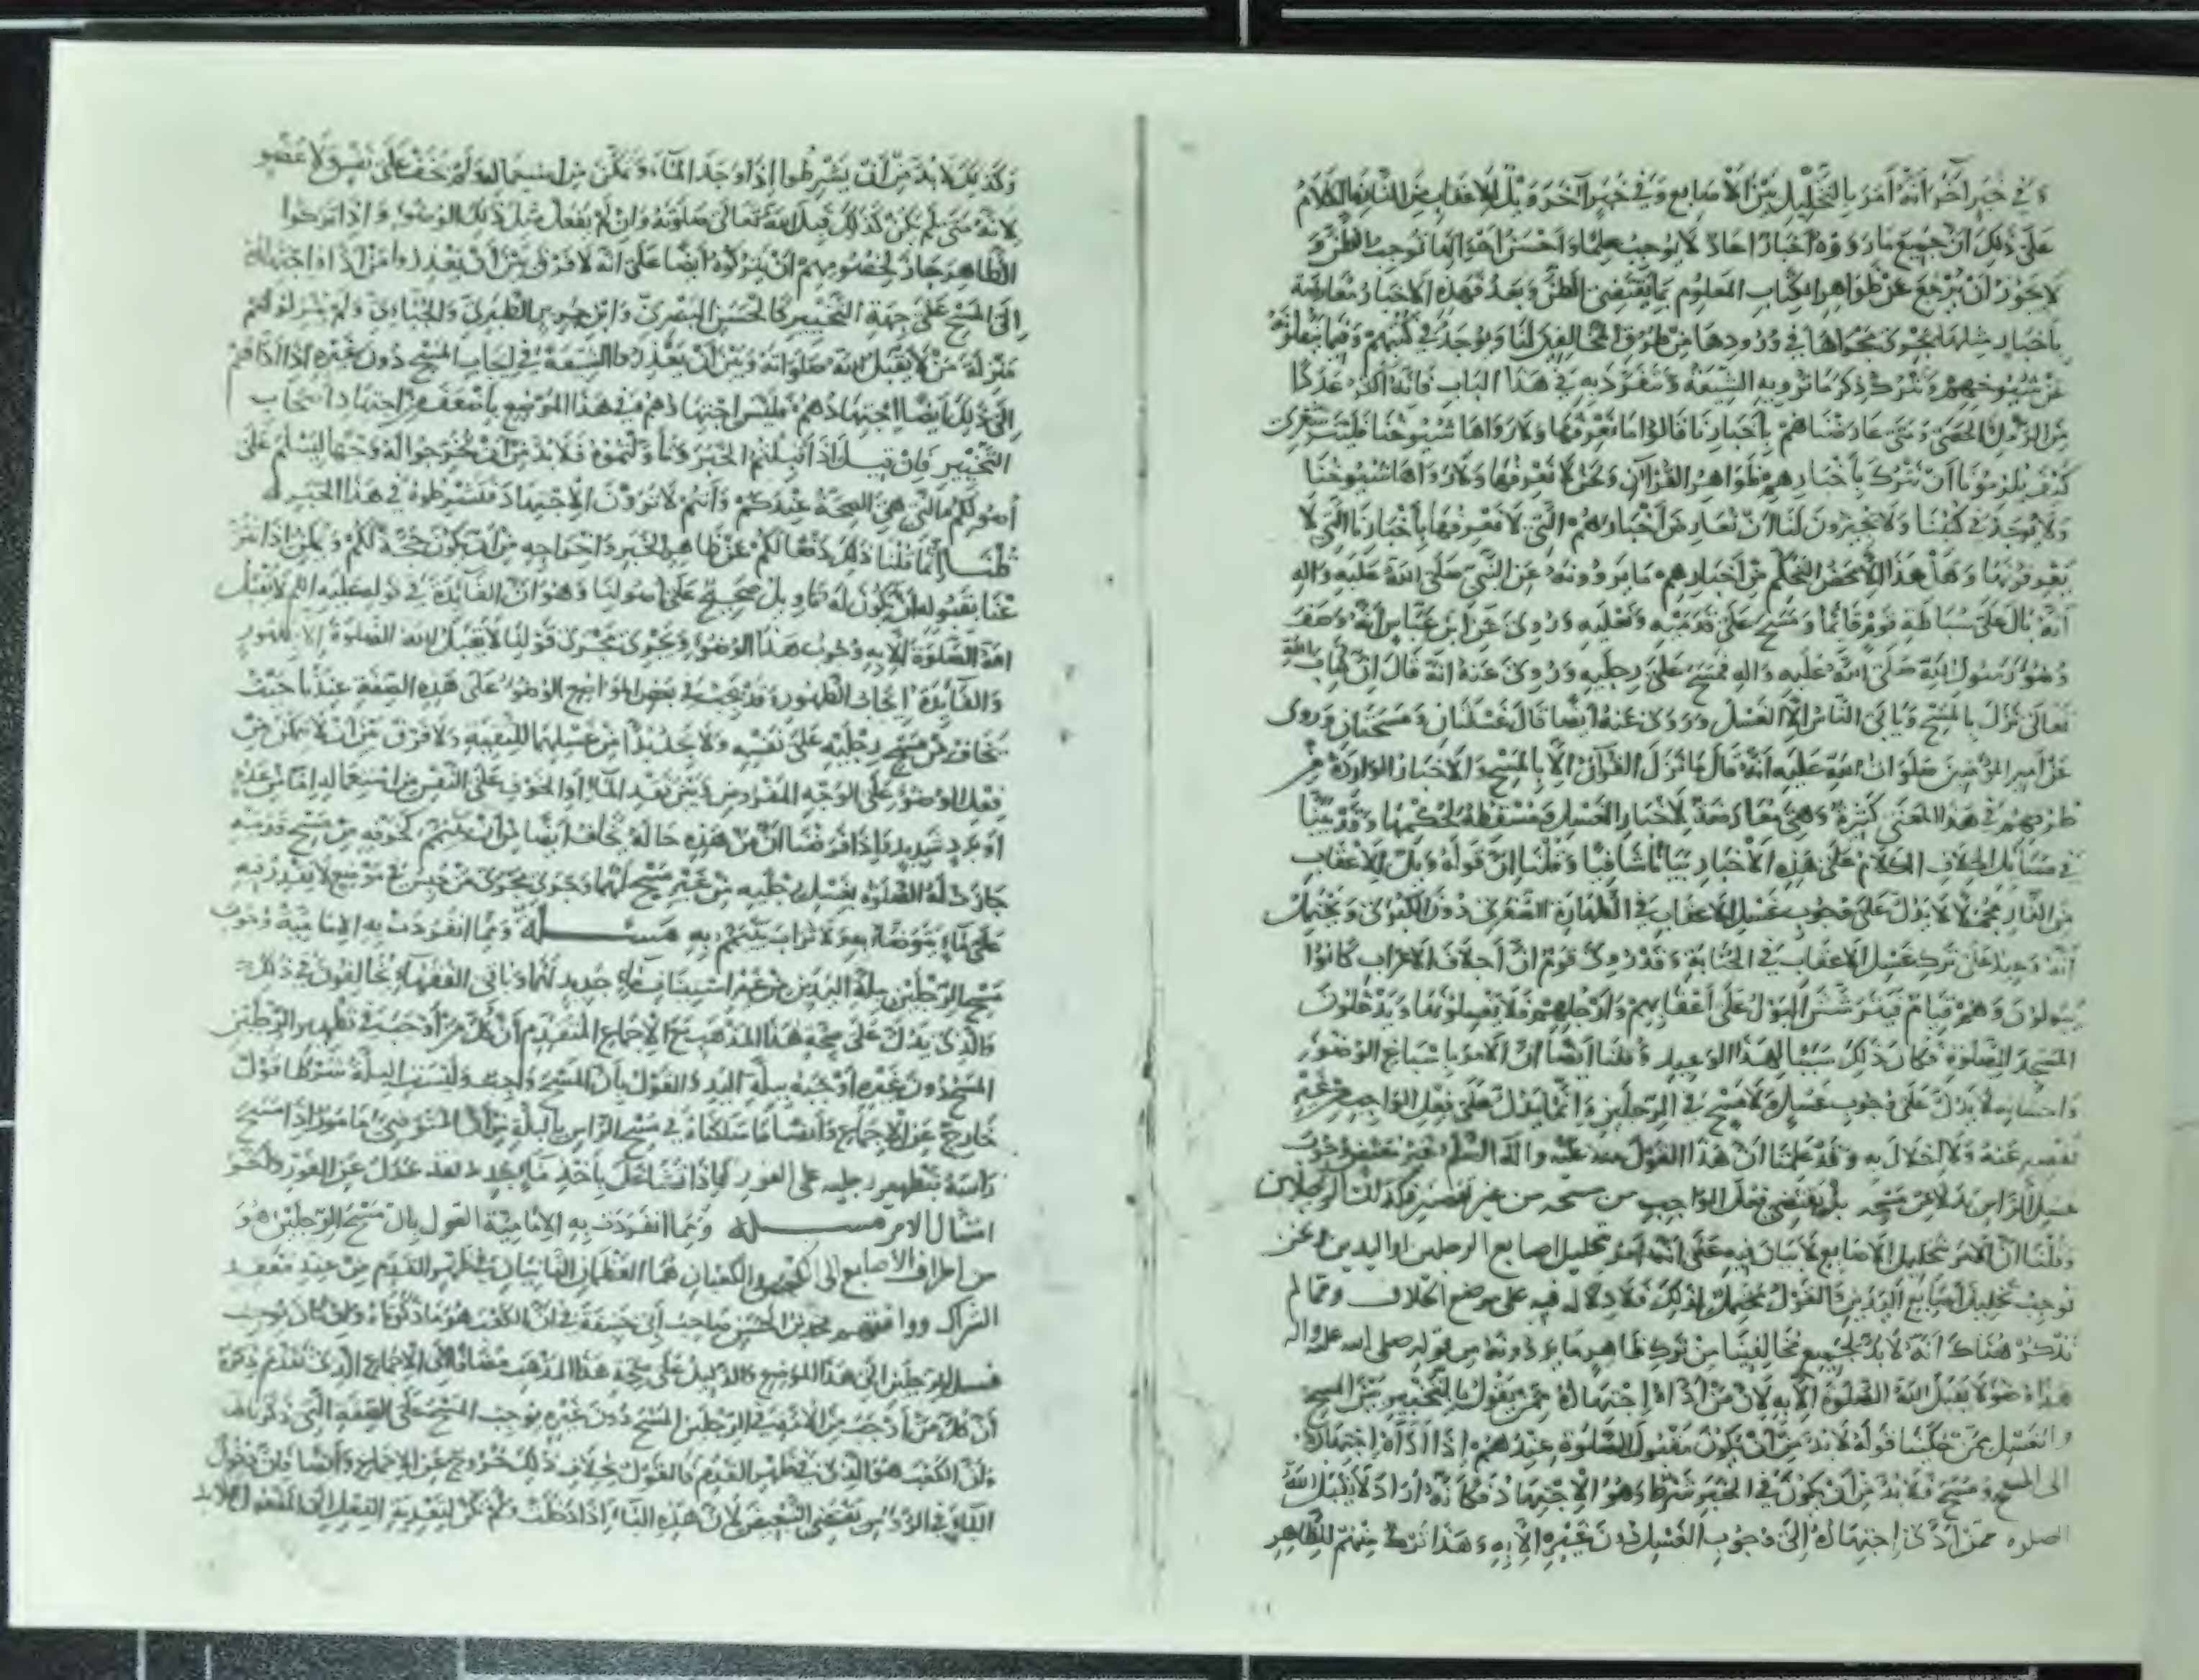 وفي خبر آخر انه أمر بالتخليل بين الأصابع وفي خبر آخر ويل للاعقاب من النار فالكلام
على ذلك ان جميع ما رووه أخبار احاد لا يوجب علما واحسن احوالها توجب الظن و
لا يجوز أن يرجع عن ظواهر الكتاب المعلوم بما يقتضي الظن وبعد فهذه الاخبار معارضة
بأخبار مثلها تجري مجراها في ورودها من طرق المخالفين لنا وتوجد في كتبهم وفيما ينقلونه
عن شيوخهم ونترك ذكر ما ترويه الشيعة وتنفرد به في هذا الباب فانه أكثر عددا
من الرمل والحصى ومتى عارضناهم بأخبارنا قالوا ما نعرفها ولا رواها شيوخنا فليت شعري
كيف يلزمونا أن نترك بأخبارهم ظواهر القرآن ونحن لا نعرفها ولا رواها شيوخنا
ولا توجد في كتبنا ولا يجيزون لنا ان نعارض أخبارهم التي لا نعرفها بأخبارنا التي لا
يعرفونها وهل هذا الا محض التحكم فمن أخبارهم ما يروونه عن النبي صلى الله عليه واله
أنه بال على سباطة قوم قائما ومسح على قدميه ونعليه وروي عن ابن عباس انه وصف
وضوء رسول الله صلى الله عليه واله فمسح على رجليه وروي عنه انه قال ان كتاب الله
تعالى نزل بالمسح ويأبى الناس الا الغسل وروي عنه أيضا قال غسلتان ومسحتان وروي
عن أمير المؤمنين صلوات الله عليه أنه قال ما نزل القرآن الا بالمسح والاخبار الواردة من
طرقهم في هذا المعنى كثيرة وهي معارضة لأخبار الغسل ومسقطة لحكمها وقد بينا
في مسائل الخلاف الكلام على هذه الأخبار بيانا شافيا وقلنا ان قوله ويل للاعقاب
من النار مجمل لا يدل على وجوب غسل الاعقاب في الطهارة الصغرى دون الكبرى ويحتمل
أنه وعيد على ترك غسل الاعقاب في الجنابة وقد روى قوم ان أجلاف الاعراب كانوا
يبولون وهم قيام فيترشش البول على أعقابهم وأرجلهم فلا يغسلونها ويدخلون
المسجد للصلوة فكان ذلك سببا لهذا الوعيد وقلنا أيضا ان الامر باسباغ الوضوء
واحسانه لا يدل على وجوب غسل ولا مسح في الرجلين وانما يدل على فعل الواجب من غير
تقصير عنه ولا اخلال به وقد علمنا ان هذا القول منه عليه واله السلم غير مقتض وجوب
غسل الرأس بدلا عن مسحه بل يقتضي فعل الواجب من مسحه من غير تقصير فكذلك الرجلان
وقلنا ان الامر بتخليل الاصابع لا بيان فيه على أنه أمر بتخليل اصابع الرجلين أو اليدين ونحن
نوجب تخليل أصابع اليدين والقول محتمل لذلك فلا دلالة فيه على موضع الخلاف ومما لم
نذكره هناك انه لا بد لجميع مخالفينا من ترك ظاهر ما يروونه من قوله صلى الله عليه واله
هذا وضوء لا يقبل الله الصلوة الا به لان من أداه اجتهاده ممن يقول بالتخيير بين المسح
والغسل ممن حكينا قوله لا بد من أن يكون مقبول الصلوة عندهم إذا أداه اجتهاده
الى المسح ومسح فلا بد من أن يكون في الخبر شرط وهو الاجتهاد فكأنه أراد لا يقبل الله
الصلوه ممن أدى اجتهاده إلى وجوب الغسل دون غيره الا به وهذا ترك منهم للظاهر
وكذلك لا بد من أن يشرطوا إذا وجد الماء وتمكن من استعماله ولم يخف على نفس ولا عضو
لانه متى لم يكن كذلك قبل الله تعالى صلوته وان لم يفعل مثل ذلك الوضوء وإذا تركوا
الظاهر جاز لخصومهم أن يتركوه أيضا على انه لا فرق بين أن يعذروا من أداه اجتهاده
إلى المسح على جهة التخيير كالحسن البصري وابن جرير الطبري والجبائي ولم ينزلوهم
منزلة من لا يقبل الله صلواته وبين أن يعذروا الشيعة في ايجاب المسح دون غيره إذا أداهم
إلى ذلك أيضا اجتهادهم فليس اجتهادهم في هذا الموضع باضعف من اجتهاد أصحاب
التخيير فإن قيل إذا قبلتم الخبر وتأولتموه فلا بد من أن تخرجوا له وجها يسلم على
أصولكم التي هي الصحيحة عندكم وأنتم لا ترون الاجتهاد فتشرطوه في هذا الخبر
قلنا إنما قلنا ذلك دفعا لكم عن ظاهر الخبر واخراجه من أن يكون حجة لكم ويمكن إذا تبرعنا
بقبوله أن يكون له تأويل صحيح على أصولنا وهو ان الفائدة في قوله عليه السلم لا يقبل
الله الصلوة الا به وجوب هذا الوضوء ويجري مجرى قولنا لا يقبل الله الصلوة الا بطهور
والفائدة ايجاب الطهور وقد يجب في بعض المواضع الوضوء على هذه الصفة عندنا حيث
يخاف من مسح رجليه على نفسه ولا يجد بدا من غسلهما للتقية ولا فرق بين ان لا يتمكن من
فعل الوضوء على الوجه المفروض وبين فقد الماء أو الخوف على النفس من استعماله اما من عدو
أو برد شديد فإذا فرضنا ان من هذه حاله يخاف أيضا من أن يتيمم كخوفه من مسح قدميه
جازت له الصلوة بغسل رجليه من غير مسح لهما وجرى مجرى من حبس في موضع لا يقدر فيه
على ماء يتوضأ به ولا تراب يتيمم به مسئلة ومما انفردت به الإمامية وجوب
مسح الرجلين ببلة اليدين من غير استيناف ماء جديد لهما وباقي الفقهاء يخالفون في ذلك
والذي يدل على صحة هذا المذهب مع الاجماع المتقدم أن كل من أوجب في تطهير الرجلين
المسح دون غيره أوجبه ببلة اليد والقول بأن المسح واجب وليست البلة شرطا قول
خارج عن الاجماع وأيضا ما سلكناه في مسح الرأس بالبلة من ان المتوضئ مأمور إذا مسح
رأسه بتطهير رجليه على الفور فإذا تشاغل بأخذ ماء جديد فقد عدل عن الفور وأخر
امتثال الامر مسئلة ومما انفردت به الإمامية القول بان مسح الرجلين هو
من أطراف الأصابع إلى الكعبين والكعبان هما العظمان الناتيان في ظهر القدم من عند معقد
الشراك ووافقهم محمد بن الحسن صاحب أبي حنيفة في ان الكعب هو ما ذكرناه وان كان يوجب
غسل الرجلين إلى هذا الموضع والدليل على صحة هذا المذهب مضافا إلى الاجماع الذي تقدم ذكره
أن كل من أوجب من الأمة في الرجلين المسح دون غيره يوجب المسح على الصفة التي ذكرناها
وان الكعب هو الذي في ظهر القدم فالقول بخلاف ذلك خروج عن الاجماع وأيضا فان دخول
الباء في الرؤوس يقتضي التبعيض لان هذه الباء إذا دخلت ولم تكن لتعدية الفعل إلى المفعول فلا بد